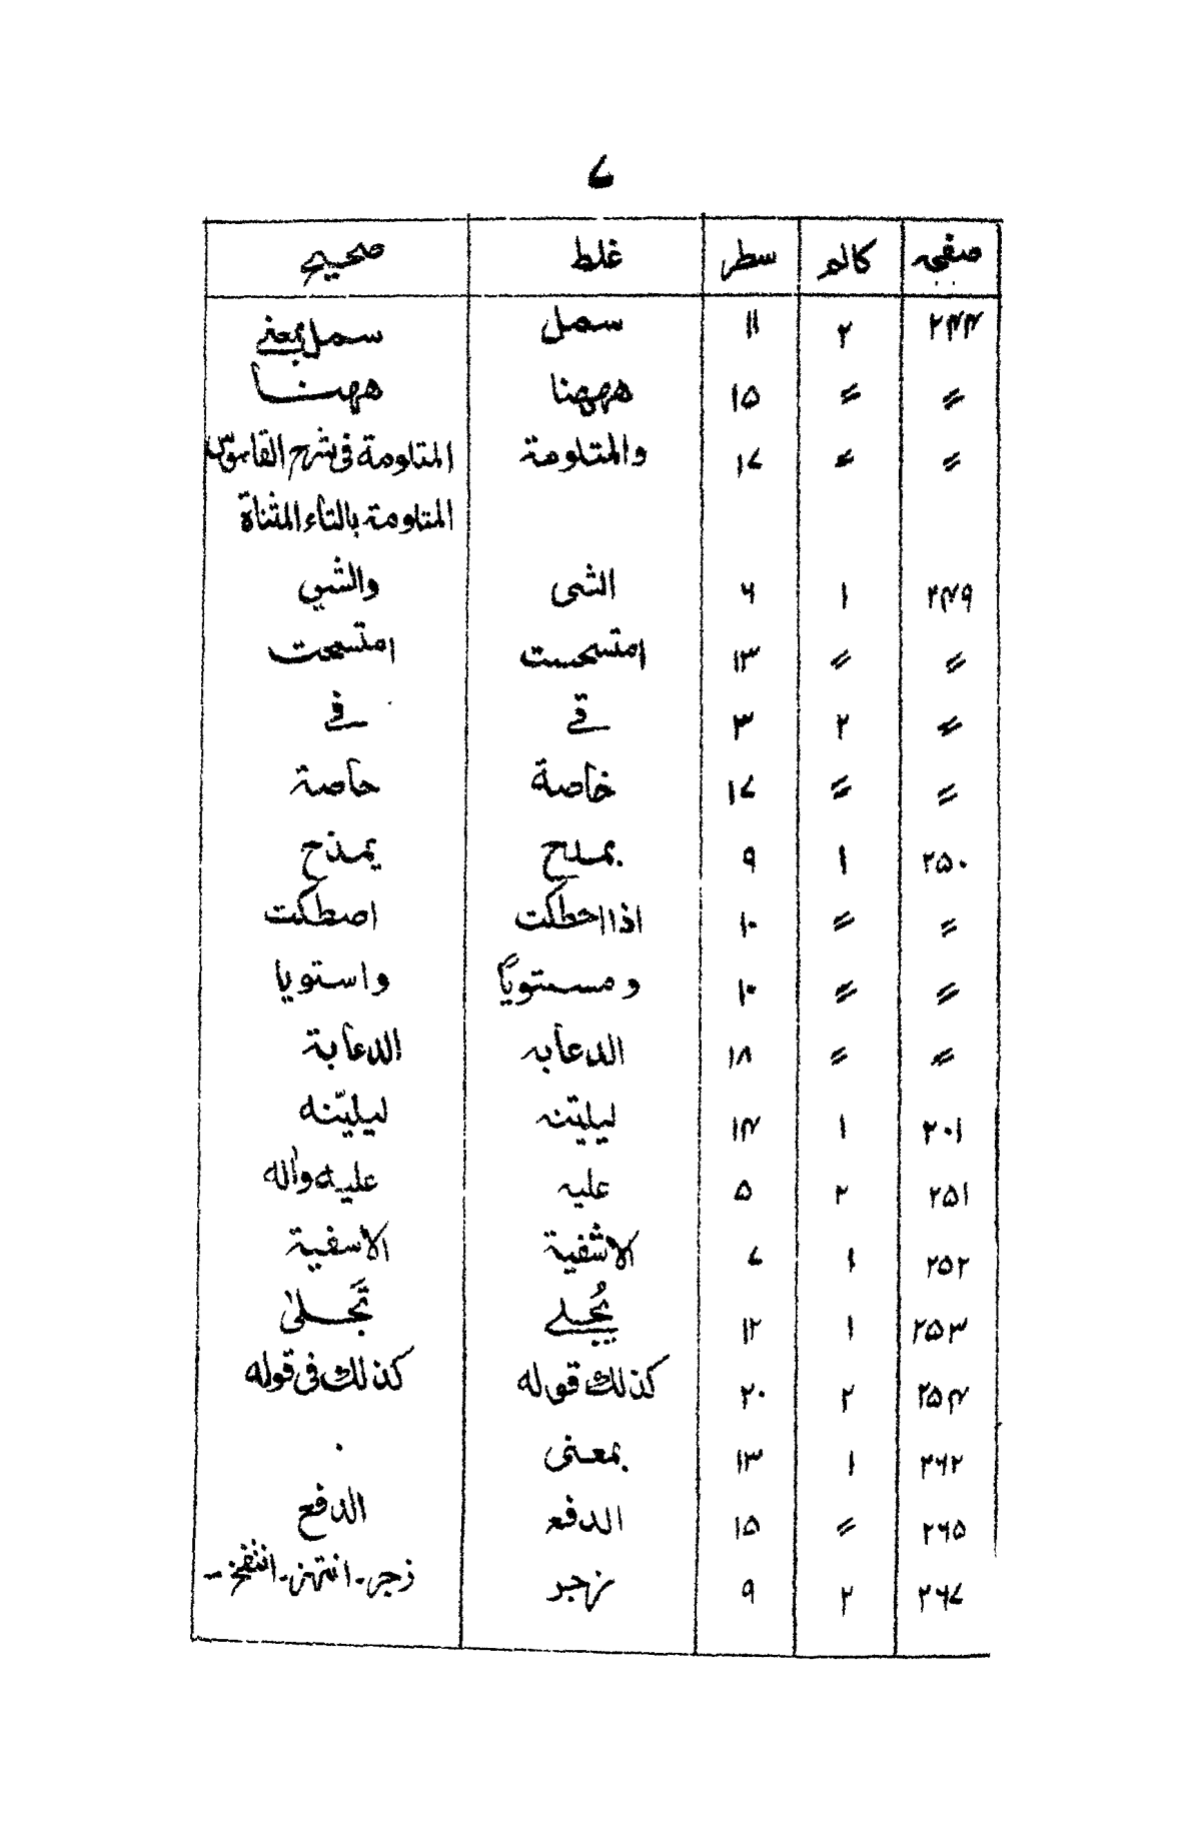 ۷
صفحہ کالم سطر غلط صحیح
۲۴۴ ۲ ۱۱ سمل سمل بمعنی
〃 〃 ۱۵ ھھھنا ھھنا
〃 〃 ۱۷ والمتلومۃ المتلومة فی شرح القاموس
المتلومۃ بالتاء المثناة
۲۴۹ ۱ ۶ الشی والشی
〃 〃 ۱۳ امتسحست امتسحت
〃 ۲ ۳ قے فے
〃 〃 ۱۷ خاصة حاصۃ
۲۵۰ ۱ ۹ بمدح یمذح
〃 〃 ۱۰ اذا احطکت اصطکت
〃 〃 ۱۰ ومستویاً واستویا
〃 〃 ۱۸ الدعابہ الدعابة
۲۰۱ ۱ ۱۴ لیلیتنہ لیلیّنه
۲۵۱ ۲ ۵ علیہ علیہ واٰله
۲۵۲ ۱ ۷ الاشفیة الاسفیۃ
۲۵۳ ۱ ۱۲ یُجلے تَجلیٰ
۲۵۴ ۲ ۲۰ کذلك قوله کذلك فی قوله
۲۶۲ ۱ ۱۳ بمعنی ۰
۲۶۵ 〃 ۱۵ الدفعہ الدفع
۲۶۷ ۲ ۹ نرجبر زجر۔ انتہز۔ انتفخ۔